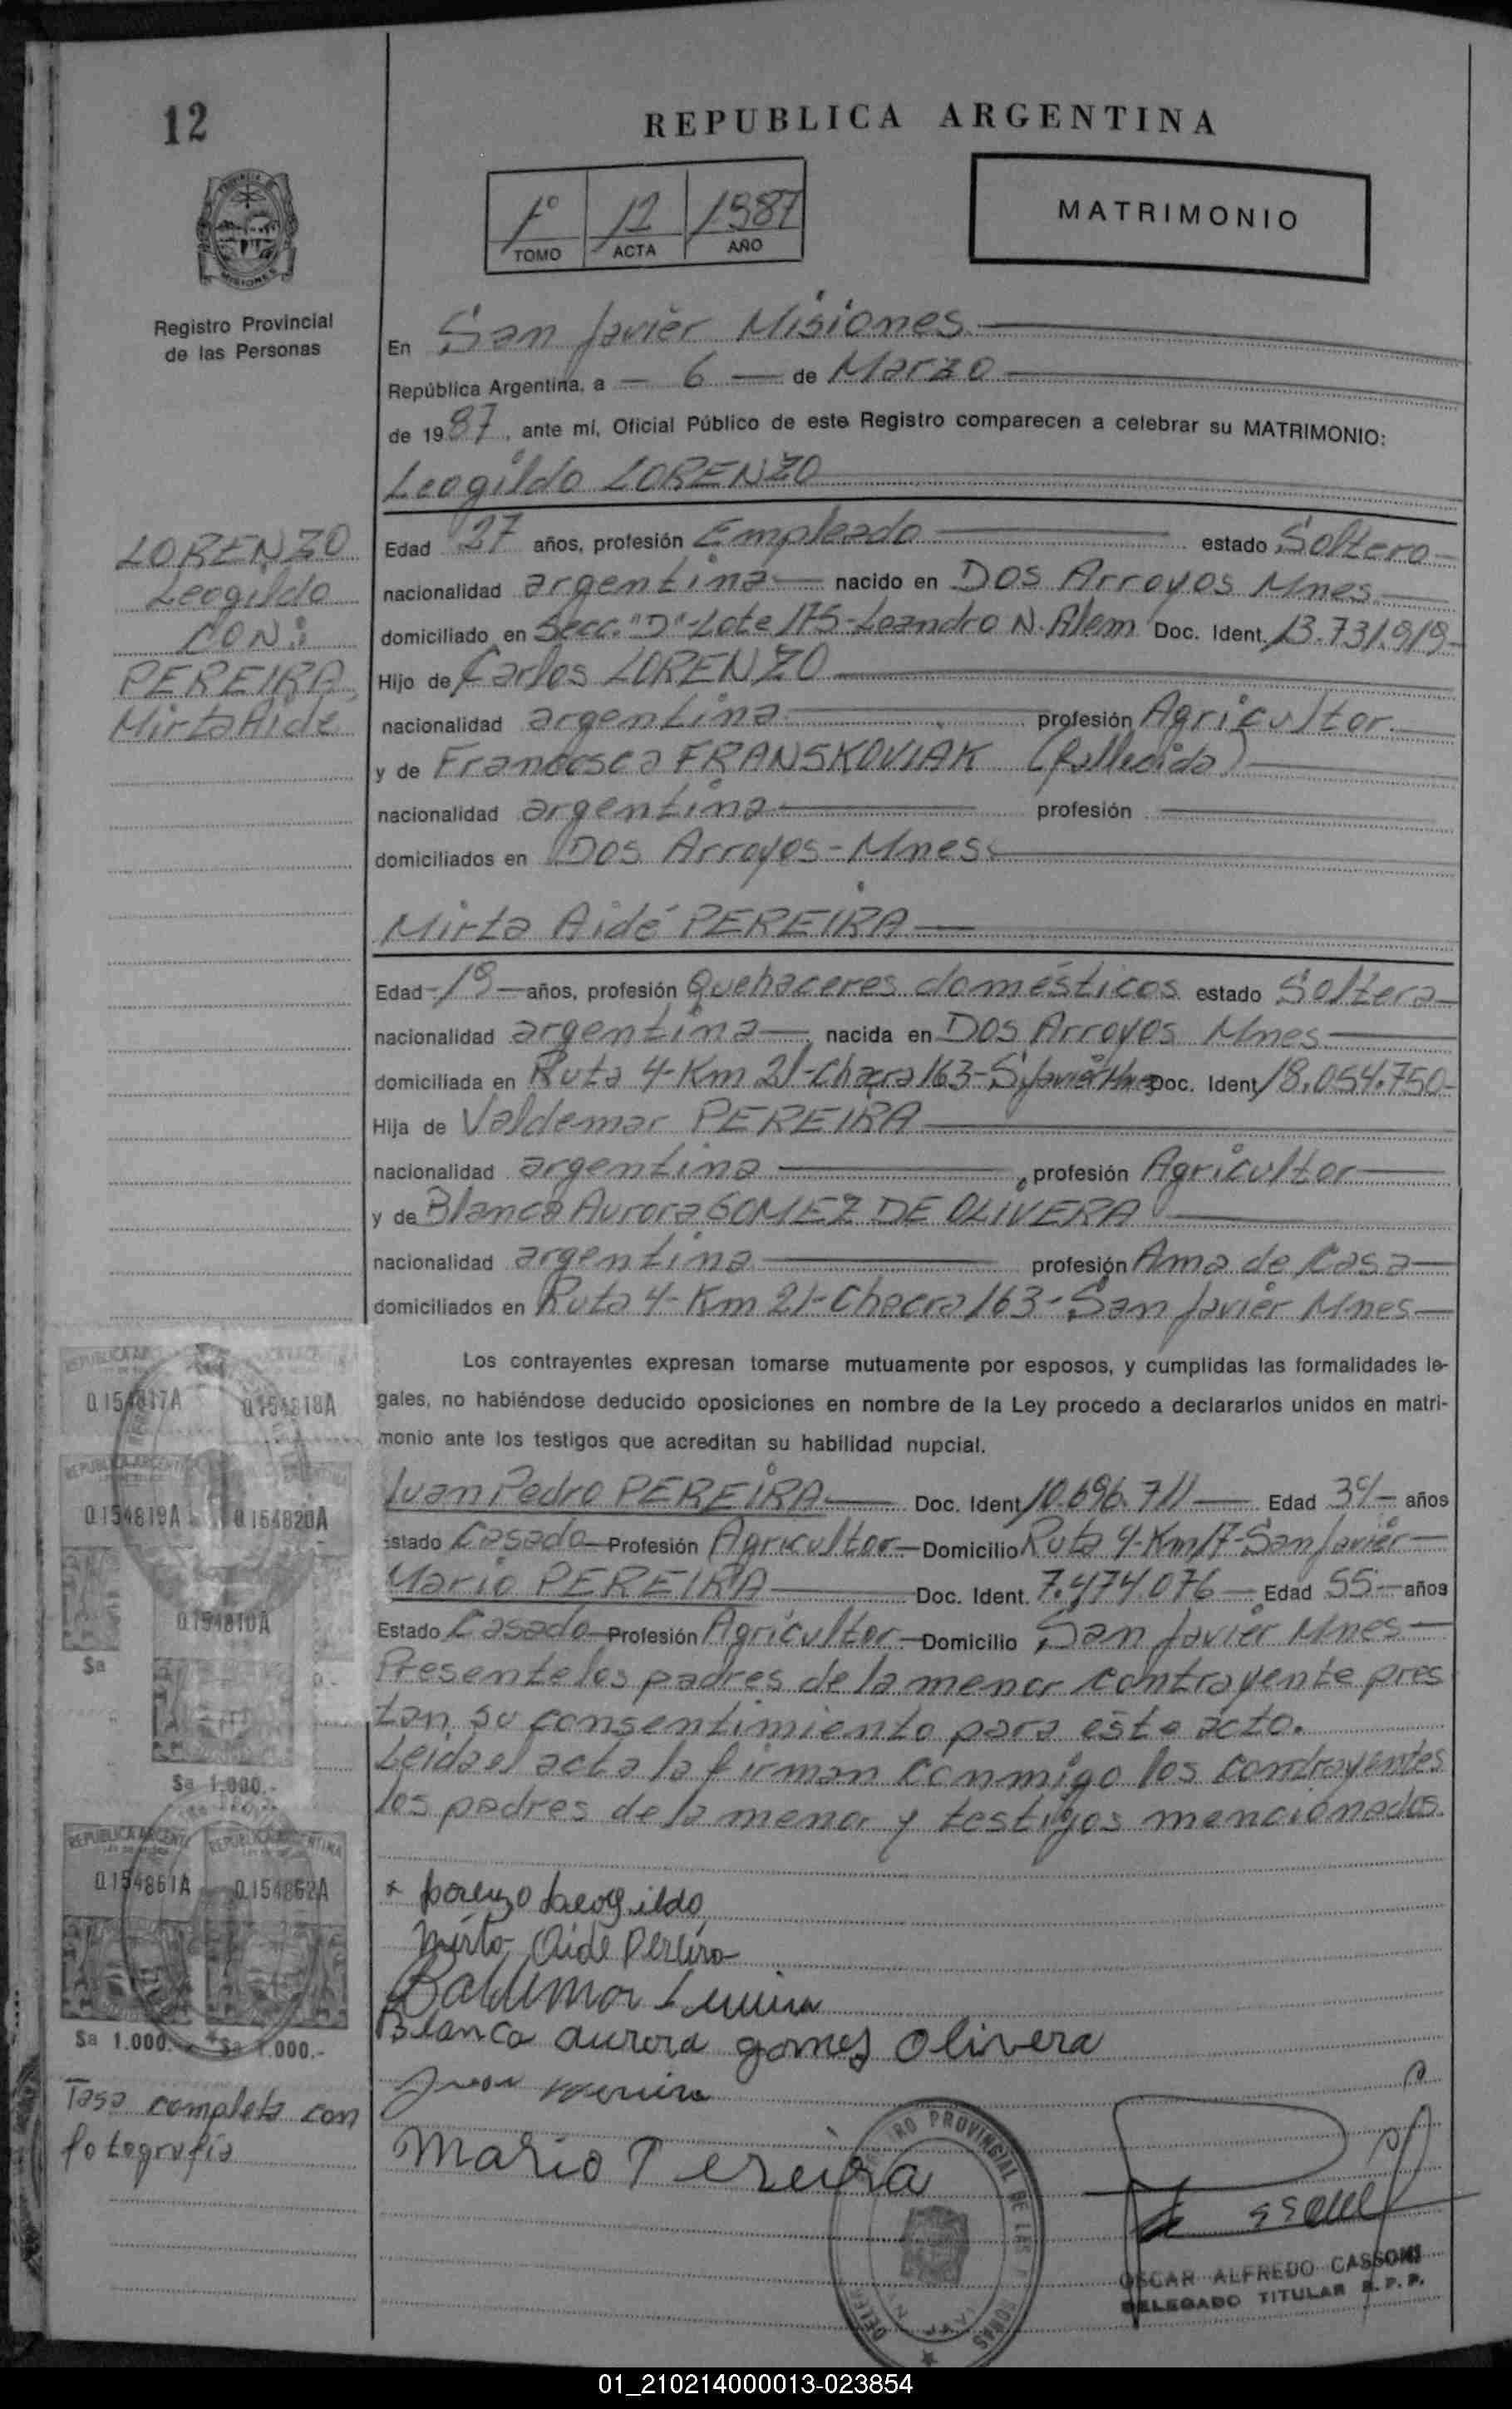 12
REPUBLICA ARGENTINA
1º 12 1987
TOMO ACTA AÑO
MATRIMONIO
PROVINCIA DE
MISIONES
Registro Provincial
de las Personas
LORENZO
Leogildo
CON:
PEREIRA,
Mirta Aide
En San Javier Misiones
República Argentina, a — 6 — de Marzo
de 1987, ante mí, Oficial Público de este Registro comparecen a celebrar su MATRIMONIO:
Leogildo LORENZO
Edad 27 años, profesión Empleado estado Soltero
nacionalidad argentina nacido en Dos Arroyos Mnes
domiciliado en Secc. "D"-Lote 175-Leandro N. Alem Doc. Ident. 13.731.919-
Hijo de Carlos LORENZO
nacionalidad argentina profesión Agricultor
y de Francesca FRANSKOVIAK (fallecida)
nacionalidad argentina profesión
domiciliados en Dos Arroyos-Mnes
Mirta Aidé PEREIRA
Edad -19- años, profesión Quehaceres domésticos estado Soltera
nacionalidad argentina, nacida en Dos Arroyos Mnes
domiciliada en Ruta 4-Km 21-Chacra 163-S.Javier Mnes Doc. Ident. 18.054.750-
Hija de Valdemar PEREIRA
nacionalidad argentina, profesión Agricultor
y de Blanca Aurora GOMEZ DE OLIVERA
nacionalidad argentina profesión Ama de Casa
domiciliados en Ruta 4-Km 21-Chacra 163-San Javier Mnes
Los contrayentes expresan tomarse mutuamente por esposos, y cumplidas las formalidades le-
gales, no habiéndose deducido oposiciones en nombre de la Ley procedo a declararlos unidos en matri-
monio ante los testigos que acreditan su habilidad nupcial.
Juan Pedro PEREIRA Doc. Ident. 10.696.711 Edad 34 años
Estado Casado Profesión Agricultor Domicilio Ruta 4-Km 17-San Javier
Mario PEREIRA Doc. Ident. 7.474.076 Edad 55 años
Estado Casado Profesión Agricultor Domicilio San Javier Mnes
Presente los padres de la menor contrayente pres
tan su consentimiento para este acto.
Leida el acta la firman conmigo los contrayentes
los padres de la menor y testigos mencionados.
REPUBLICA ARGENTINA
0.154817A 0.154818A
0.154819A 0.154820A
0.154810A
$a
$a 1.000.-
REPUBLICA ARGENTINA REPUBLICA ARGENTINA
0.154861A 0.154862A
$a 1.000.- $a 1.000.-
Tasa completa con
fotografía
x Lorenzo Leogildo
Mirta Aide Pereira
Baldimar
Blanca aurora gomes Olivera
Juan Pereira
Mario Pereira
REGISTRO PROVINCIAL DE LAS PERSONAS
OSCAR ALFREDO CASSONI
DELEGADO TITULAR R.P.P.
01_210214000013-023854